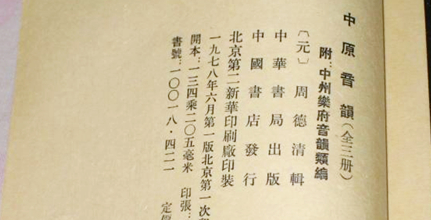 中原音韻(全三册)
附:中州樂府音韻類編
〔元〕 周德清輯
中華書局出版
中國書店發行
北京第二新華印刷廠印裝
一九七八年六月第一版北京第一次
開本:一三四乘二〇五毫米 印張:
書號:一〇〇一八·四二一
定價